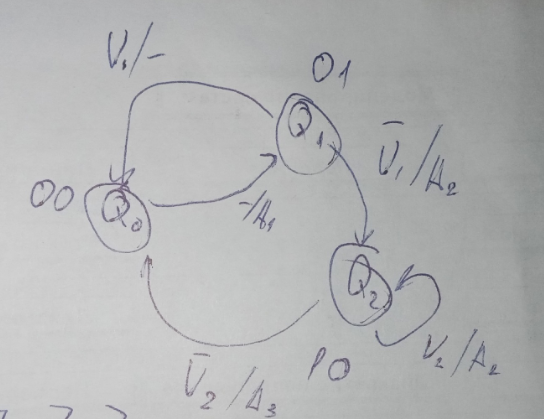 V₁/-
01
Q₁
V̄₁/A₂
00
Q₀
-/A₁
Q₂
V₂/A₂
V̄₂/A₃
10